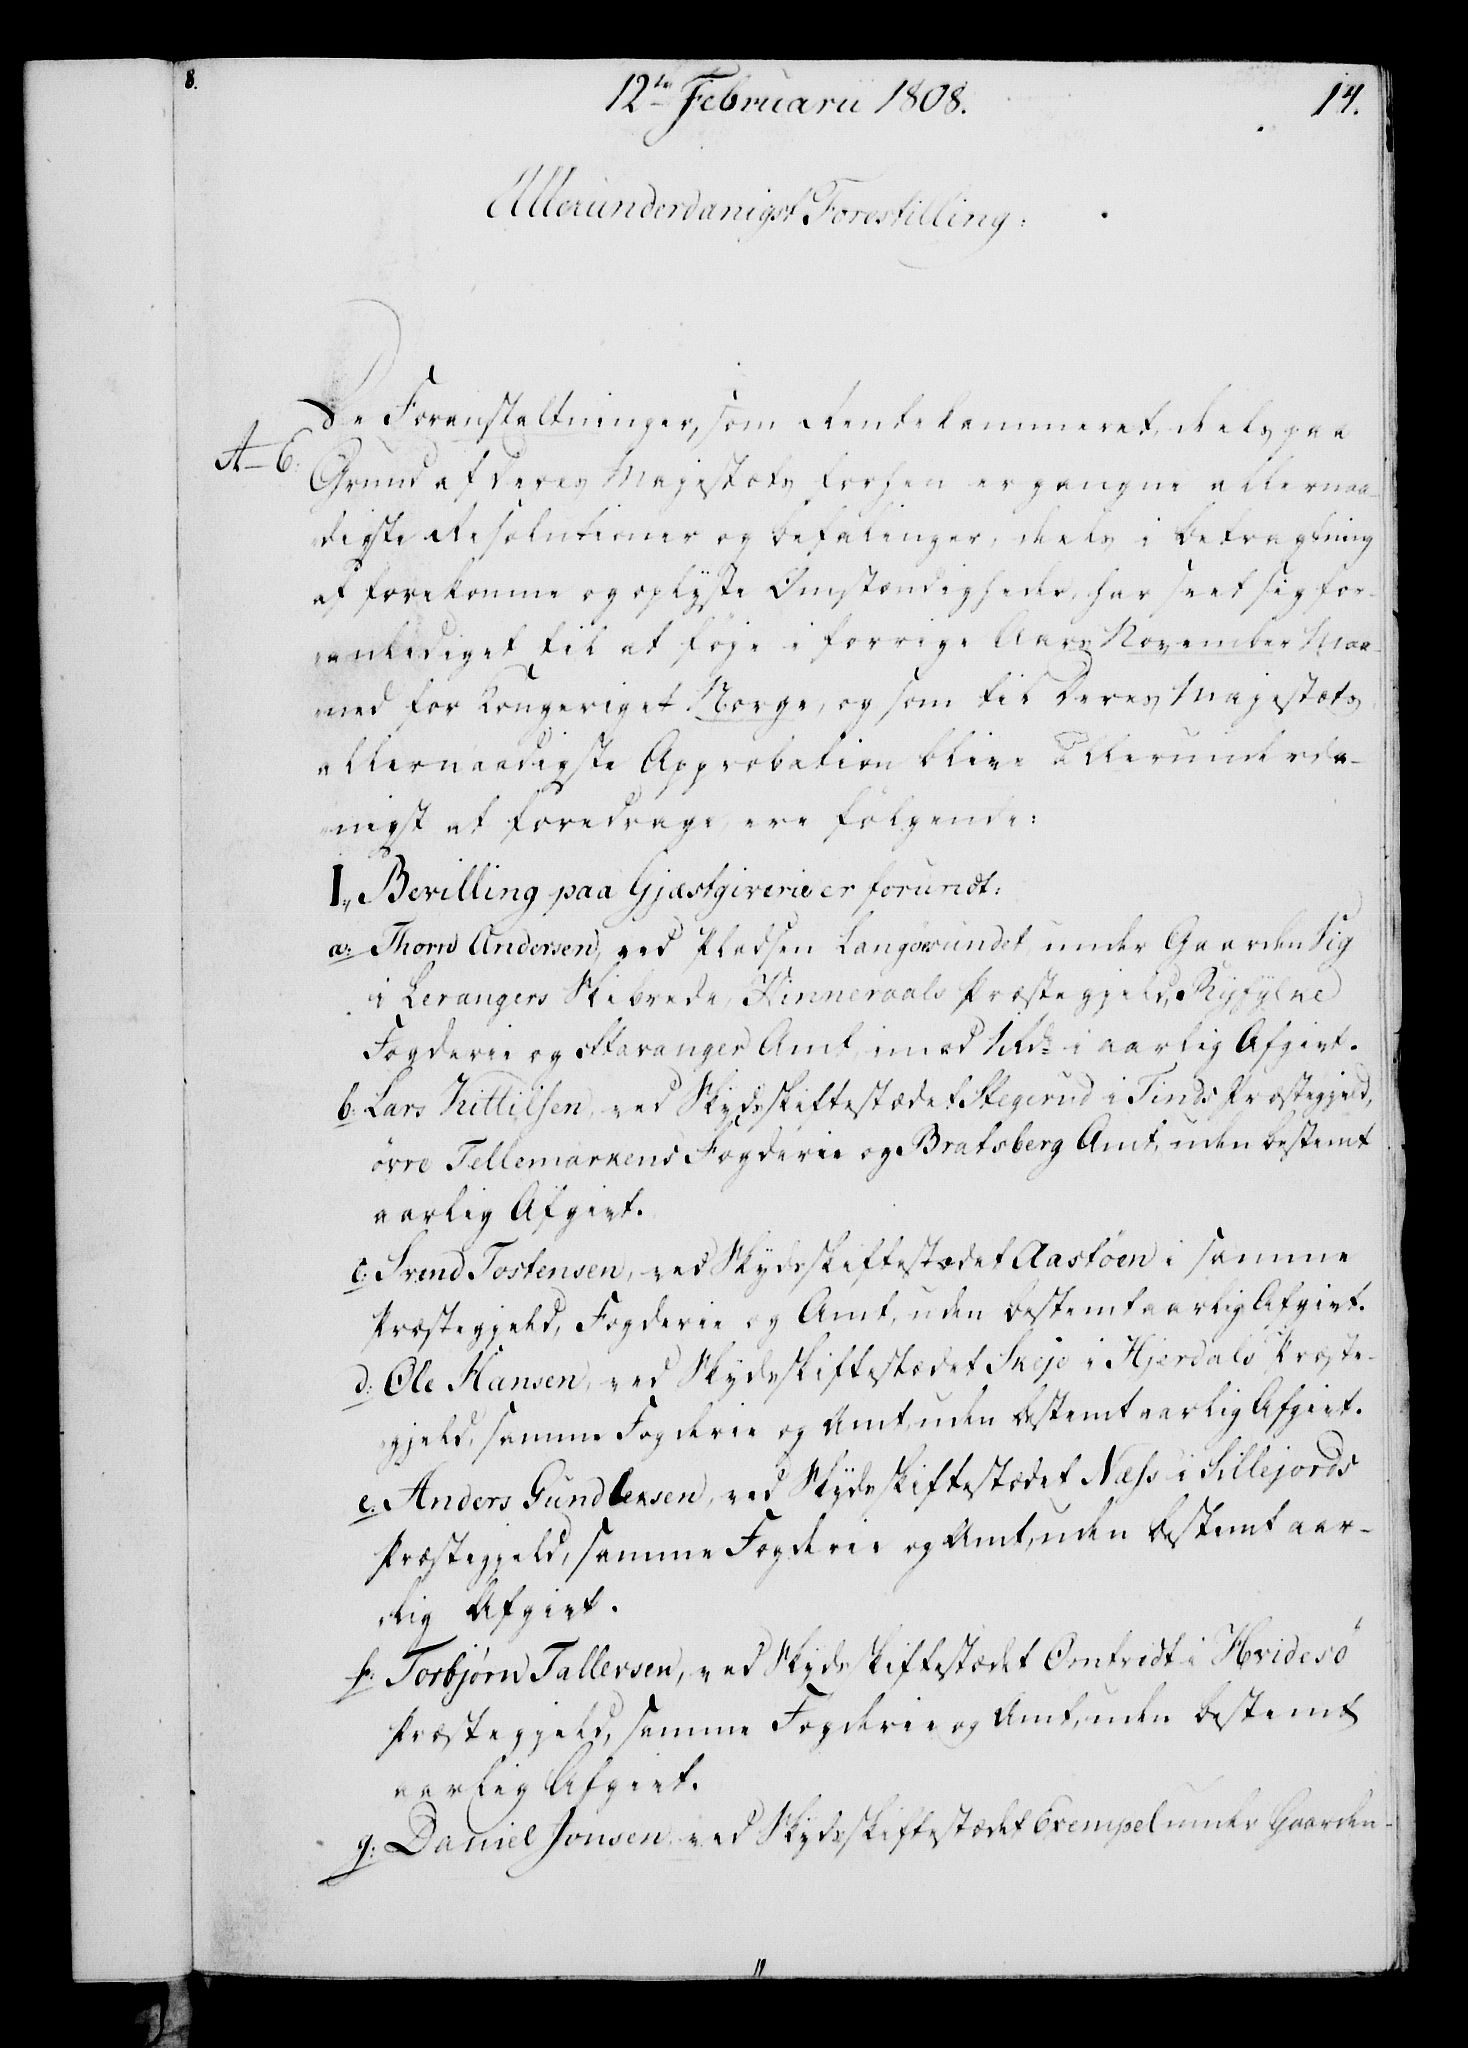 8.
12te Februarii 1808.
14.
Allerunderdanigst Forestilling:
De Foranstaltninger, som Rentekammeret, deels paa
A–C:
Grund af Deres Majestæts forhen ergangne allernaa-
digste Resolutioner og Befalinger, deels i Betragtning
af forekomne og oplyste Omstændigheder, har seet sig for-
anlediget til at føje i forrige Aars November Maa-
ned for Kongeriget Norge, og som til Deres Majestæts
allernaadigste Approbation blive allerunderda-
nigst at foredrage, ere følgende:
1, Bevilling paa Gjæstgiverier forundt:
a: Thorn Andersen, ved Pladsen Langøesundet under Gaarden Sig
i Lerangers Skibrede, Hinneraals Præstegjeld, Ryfylke
Fogderie og Stavanger Amt, imod 1 Rd. i aarlig Afgivt.
b: Lars Kittilsen, ved Skydsskiftestædet Skegerud i Tinds Præstegjeld,
øvre Tellemarkens Fogderie og Bratsberg Amt, uden bestemt
aarlig Afgivt.
c: Svend Tostensen, ved Skydsskiftestædet Aastöen i samme
Præstegjeld, Fogderie og Amt, uden bestemt aarlig Afgivt.
d: Ole Hansen, ved Skydsskiftestædet Skeje i Hjerdals Præste-
gjeld, samme Fogderie og Amt, uden bestemt aarlig Afgivt.
e. Anders Gundleksen, ved Skydsskiftestædet Næss i Sillejords
Præstegjeld, samme Fogderie og Amt, uden bestemt aar-
lig Afgivt.
f: Torbjørn Tallevsen, ved Skydsskiftestædet Omtvidt i Hvidesö
Præstegjeld, samme Fogderie og Amt, uden bestemt
aarlig Afgivt.
g: Daniel Jonsen, ved Skydsskiftestædet Exempel under Gaarden-